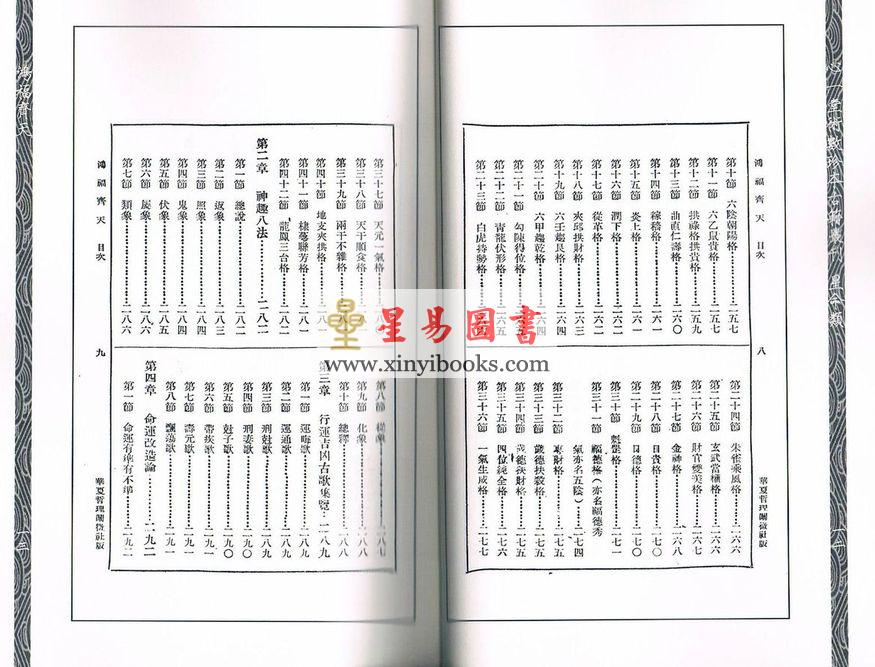 鴻福齊天 目次
八
華夏哲理闡微社版
第十節 六陰朝陽格 二五七
第十一節 六乙鼠貴格 二五七
第十二節 拱祿格拱貴格 二五九
第十三節 曲直仁壽格 二六〇
第十四節 稼穡格 二六〇
第十五節 炎上格 二六一
第十六節 潤下格 二六一
第十七節 從革格 二六二
第十八節 夾邱拱財格 二六三
第十九節 六壬趨艮格 二六四
第二十節 六甲趨乾格 二六四
第二十一節 勾陳得位格
第二十二節 青龍伏形格
第二十三節 白虎持勢格
第二十四節 朱雀乘風格 二六六
第二十五節 玄武當權格 二六六
第二十六節 財官雙美格
第二十七節 金神格 二六八
第二十八節 日貴格 二七〇
第二十九節 日德格 二七〇
第三十節 魁罡格 二七一
第三十一節 福德格（亦名福德秀
氣亦名五陰） 二七四
第三十二節 專財格 二七五
第三十三節 歲德扶殺格 二七五
第三十四節 歲德扶財格 二七五
第三十五節 四位純全格 二七六
第三十六節 一氣生成格 二七七
鴻福齊天 目次
九
華夏哲理闡微社版
第三十七節 天元一氣格
第三十八節 天干順食格
第三十九節 兩干不雜格
第四十節 地支夾拱格
第四十一節 棣萼聯芳格 二八二
第四十二節 龍鳳三台格 二八二
第二章 神趣八法 二八二
第一節 總說 二八二
第二節 返象 二八三
第三節 照象 二八四
第四節 鬼象 二八四
第五節 伏象 二八五
第六節 屬象 二八六
第七節 類象 二八六
第八節 從象 二八七
第九節 化象 二八七
第十節 總釋 二八八
第三章 行運吉凶古歌集覽 二八九
第一節 運晦歌
第二節 運通歌
第三節 刑尅歌
第四節 刑妻歌 二九〇
第五節 尅子歌 二九〇
第六節 帶疾歌 二九一
第七節 壽元歌 二九一
第八節 飄蕩歌 二九一
第四章 命運改造論 二九二
第一節 命運有準有不準 二九二
星易圖書
www.xinyibooks.com
鴻福齊天